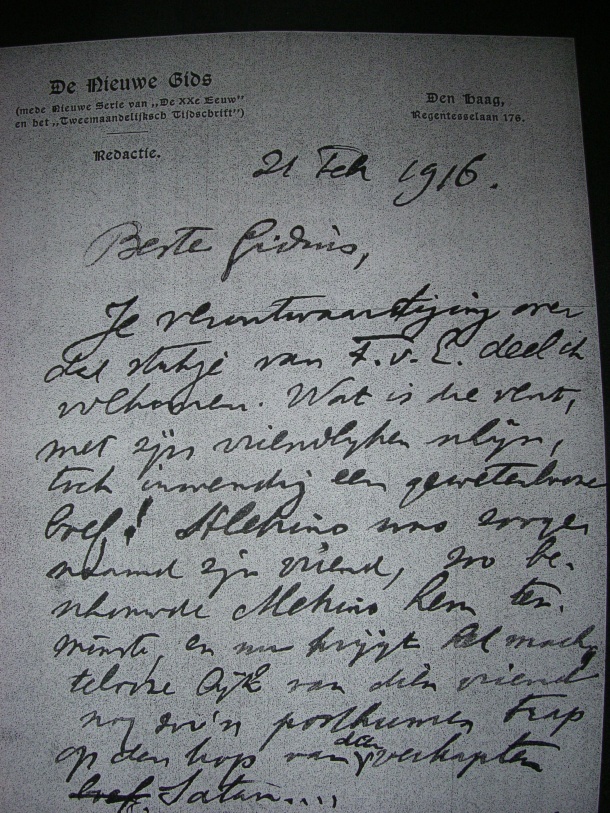 De Nieuwe Gids
(mede Nieuwe Serie van „De XXe Eeuw"
en het „Tweemaandelijksch Tijdschrift")
Redactie.
Den Haag,
Regentesselaan 176.
21 Feb 1916.
Beste Gidius,
Je verontwaardiging over
dat stukje van F.v.E. deel ik
volkomen. Wat is die vent,
met zijn vriendlyken schijn,
toch inwendig een gewetenlooze
bref! Alehino was zooge-
naamd zijn vriend, zoo be-
schouwde Alehino hem ten-
minste, en nu krijgt het mach-
telooze lijk van dien vriend
nog zoo'n posthumen trap
op den kop van den verkapten
Satan....